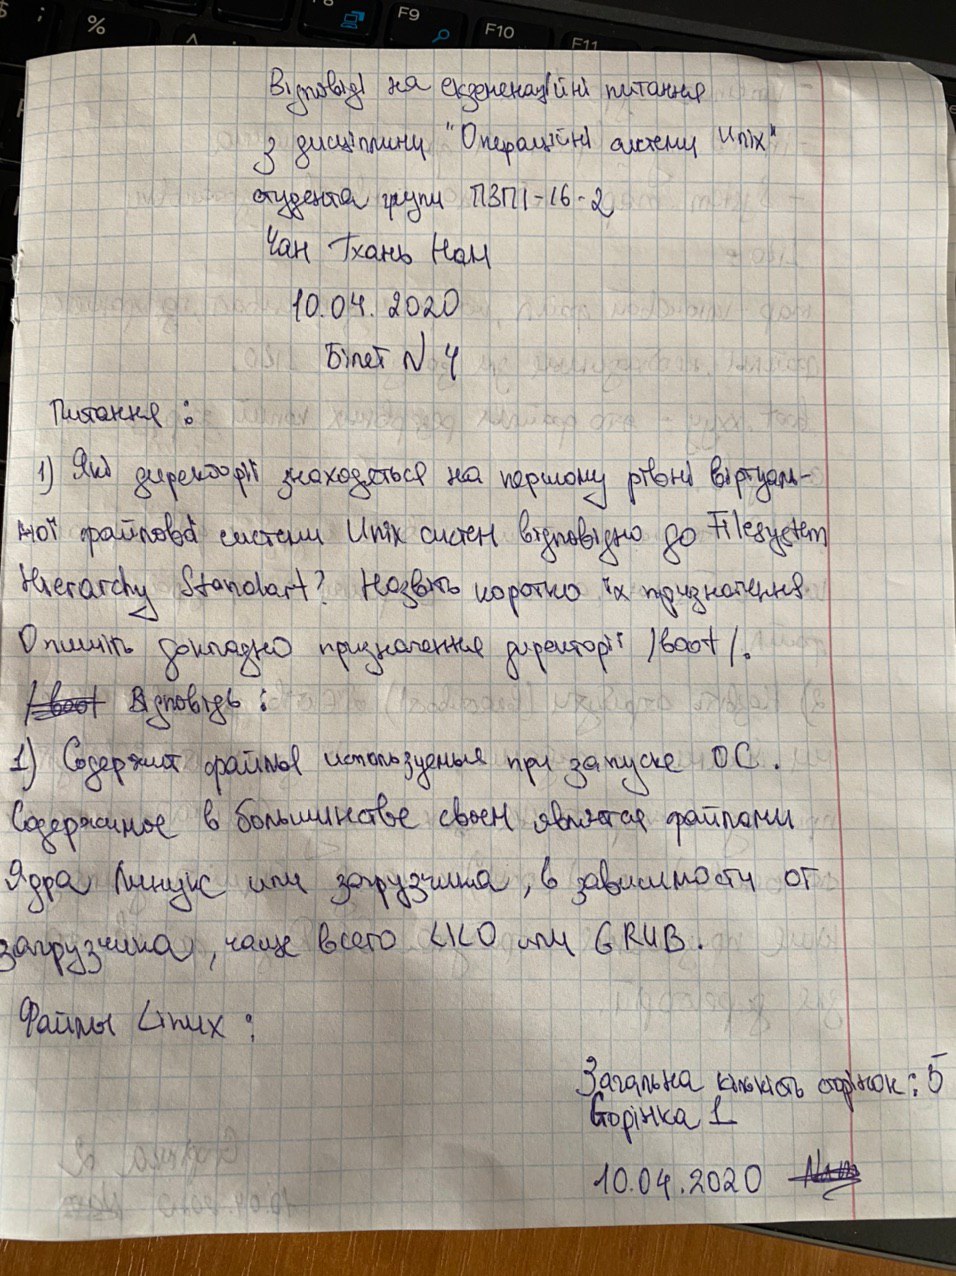 Відповіді на екземенаційні питання
з дисципліну "Операційні системи Unix"
студента групи ПЗПІ-16-2
Чан Тхань Нам
10.04.2020
Білет N 4
Питання:
1) Які директорії знаходяться на першому рівні віртуаль-
ної файлової системи Unix систем відповідно до Filesystem
Hierarchy Standart? Назвіть коротко їх призначення
Опишіть докладно призначення директорії /boot/.
/boot Відповідь:
1) Содержит файлы используемыя при запуске ОС.
Содержимое в большинстве своем является файлами
Ядра Линукс или загрузчика, в зависимости от
загрузчика, чаще всего LILO или GRUB.
Файлы Linux:
Загальна кількість сторінок: 5
Сторінка 1
10.04.2020
F9
F10
F11
%